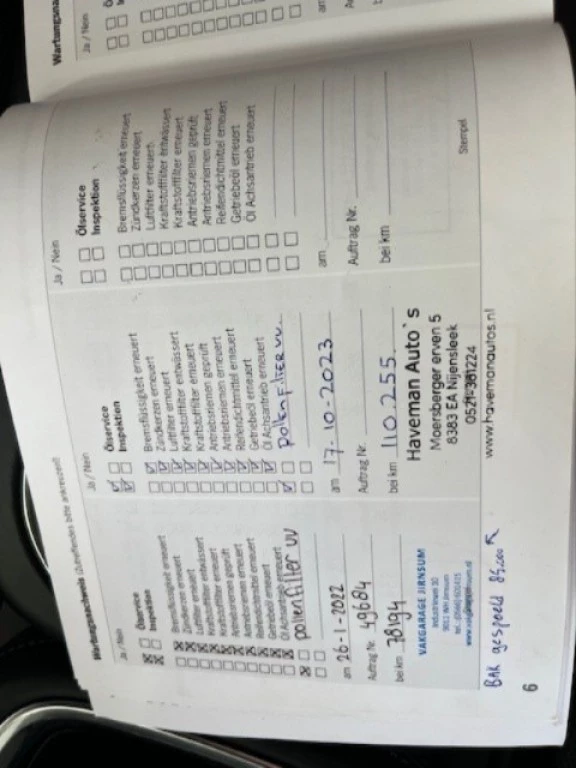 Wartungsnachweis (Zutreffendes bitte ankreuzen)
Ja / Nein
Ölservice
Inspektion
Bremsflüssigkeit erneuert
Zündkerzen erneuert
Luftfilter erneuert
Kraftstofffilter entwässert
Kraftstofffilter erneuert
Antriebsriemen geprüft
Antriebsriemen erneuert
Reifendichtmittel erneuert
Getriebeöl erneuert
Öl Achsantrieb erneuert
pollenfilter vv
am 26-1-2022
Auftrag Nr. 49684
bei km 38194
VAKGARAGE JIRNSUM
Ja / Nein
Ölservice
Inspektion
Bremsflüssigkeit erneuert
Zündkerzen erneuert
Luftfilter erneuert
Kraftstofffilter entwässert
Kraftstofffilter erneuert
Antriebsriemen geprüft
Antriebsriemen erneuert
Reifendichtmittel erneuert
Getriebeöl erneuert
Öl Achsantrieb erneuert
pollenfilter vv.
am 17-10-2023
Auftrag Nr.
bei km 110.255.
Haveman Auto`s
Moersberger erven 5
8383 EA Nijensleek
0521-381224
www.havemanautos.nl
Ja / Nein
Ölservice
Inspektion
Bremsflüssigkeit erneuert
Zündkerzen erneuert
Luftfilter erneuert
Kraftstofffilter entwässert
Kraftstofffilter erneuert
Antriebsriemen geprüft
Antriebsriemen erneuert
Reifendichtmittel erneuert
Getriebeöl erneuert
Öl Achsantrieb erneuert
am
Auftrag Nr.
bei km
Stempel
BAK gespoeld 84.000
6
Ja / Nein